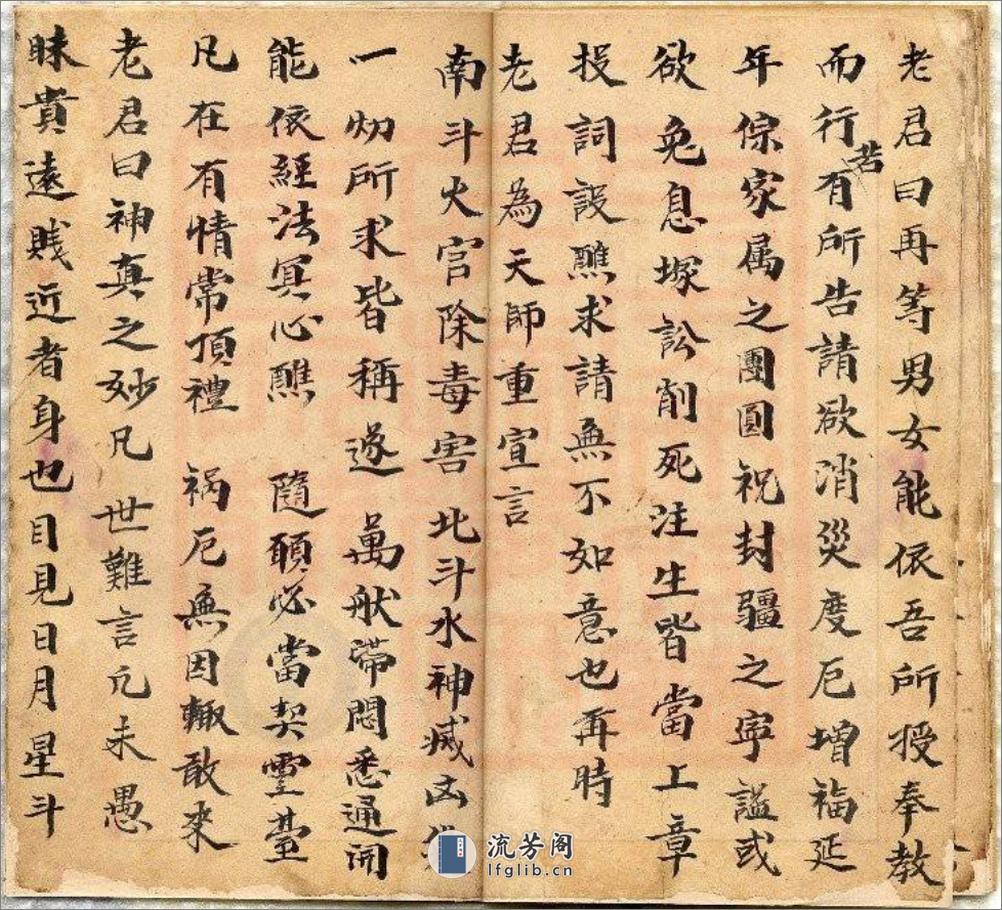 老君曰再等男女能依吾所授奉教
而行若有所告請欲消災度厄增福延
年保家属之團圓祝封疆之寧謐或
欲免息塚訟削死注生皆當上章
投詞設醮求請無不如意也再時
老君為天師重宣言
南斗火官除毒害 北斗水神滅凶
一切所求皆稱遂 萬般滯悶悉通開
能依經法冥心醮 隨願必當契靈臺
凡在有情常頂禮 禍厄無因輙敢来
老君曰神真之妙凡世難言凢未愚
昧貴遠賎近者身也目見日月星斗
流芳阁
lfglib.cn